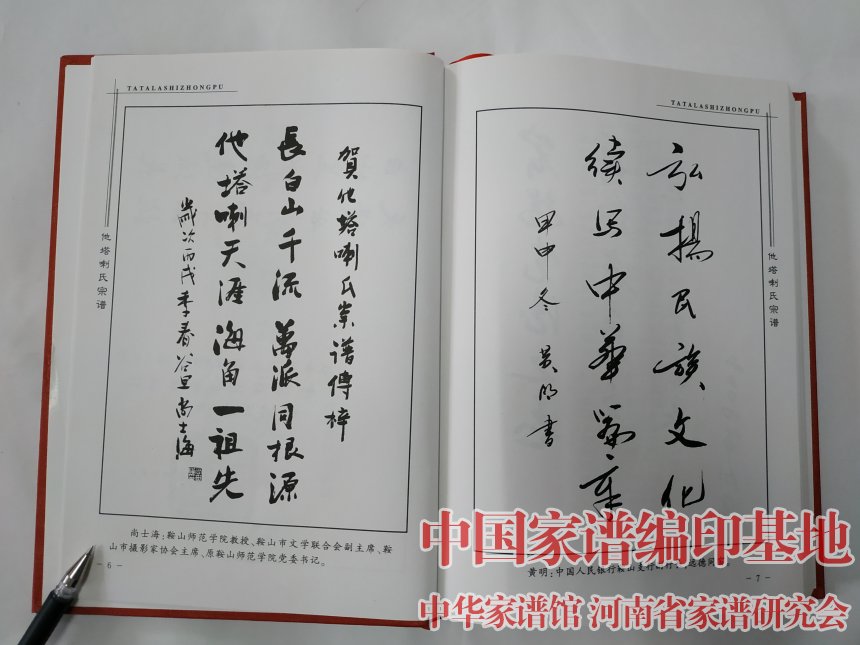 TATALASHIZHONGPU
他塔喇氏宗谱
賀他塔喇氏宗譜傳梓
長白山千流萬派同根源
他塔喇天涯海角一祖先
歲次丙戌季春谷旦尚士海
尚士海：鞍山师范学院教授、鞍山市文学联合会副主席、鞍
山市摄影家协会主席、原鞍山师范学院党委书记。
-6-
TATALASHIZHONGPU
他塔喇氏宗谱
弘揚民族文化
續写中華篇章
甲申冬 黄明書
黄明：中国人民银行鞍山支行
-7-
中国家谱编印基地
中华家谱馆 河南省家谱研究会